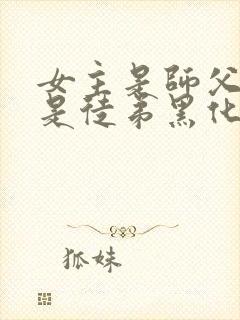 女主是師父
是徒弟黑化
狐妹